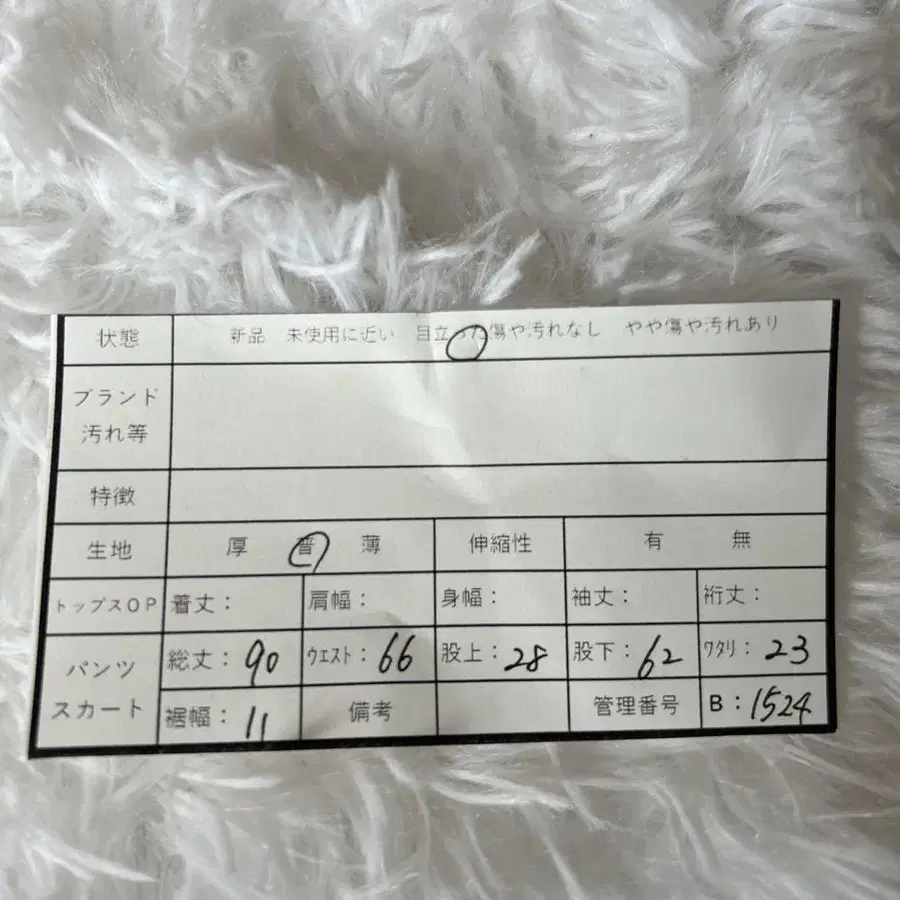 状態 新品 未使用に近い 目立った傷や汚れなし やや傷や汚れあり
ブランド
汚れ等
特徴
生地 厚 普 薄 伸縮性 有 無
トップスOP 着丈： 肩幅： 身幅： 袖丈： 裄丈：
パンツ
スカート
総丈：90 ウエスト：66 股上：28 股下：62 ワタリ：23
裾幅：11 備考 管理番号 B：1524